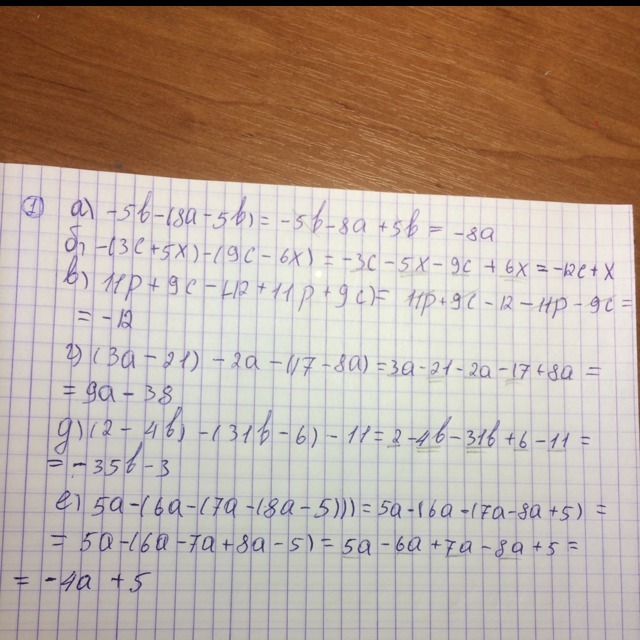 1) а) -5b-(8a-5b) = -5b-8a+5b = -8a
б) -(3c+5x)-(9c-6x) = -3c-5x-9c+6x = -12c+x
в) 11p+9c-(12+11p+9c)= 11p+9c-12-11p-9c=
= -12
г) (3a-21)-2a-(17-8a)=3a-21-2a-17+8a=
= 9a-38
д) (2-4b)-(31b-6)-11=2-4b-31b+6-11=
= -35b-3
е) 5a-(6a-(7a-(8a-5)))=5a-(6a-(7a-8a+5)=
= 5a-(6a-7a+8a-5)=5a-6a+7a-8a+5=
= -4a+5